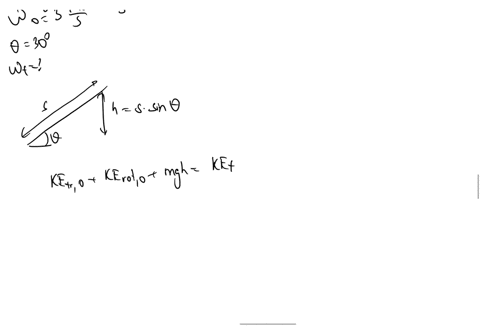 ω₀ = 3
s
θ = 30°
ω_f = ?
s
h = s · sin θ
θ
KE_tr,0 + KE_rot,0 + mgh = KE_f